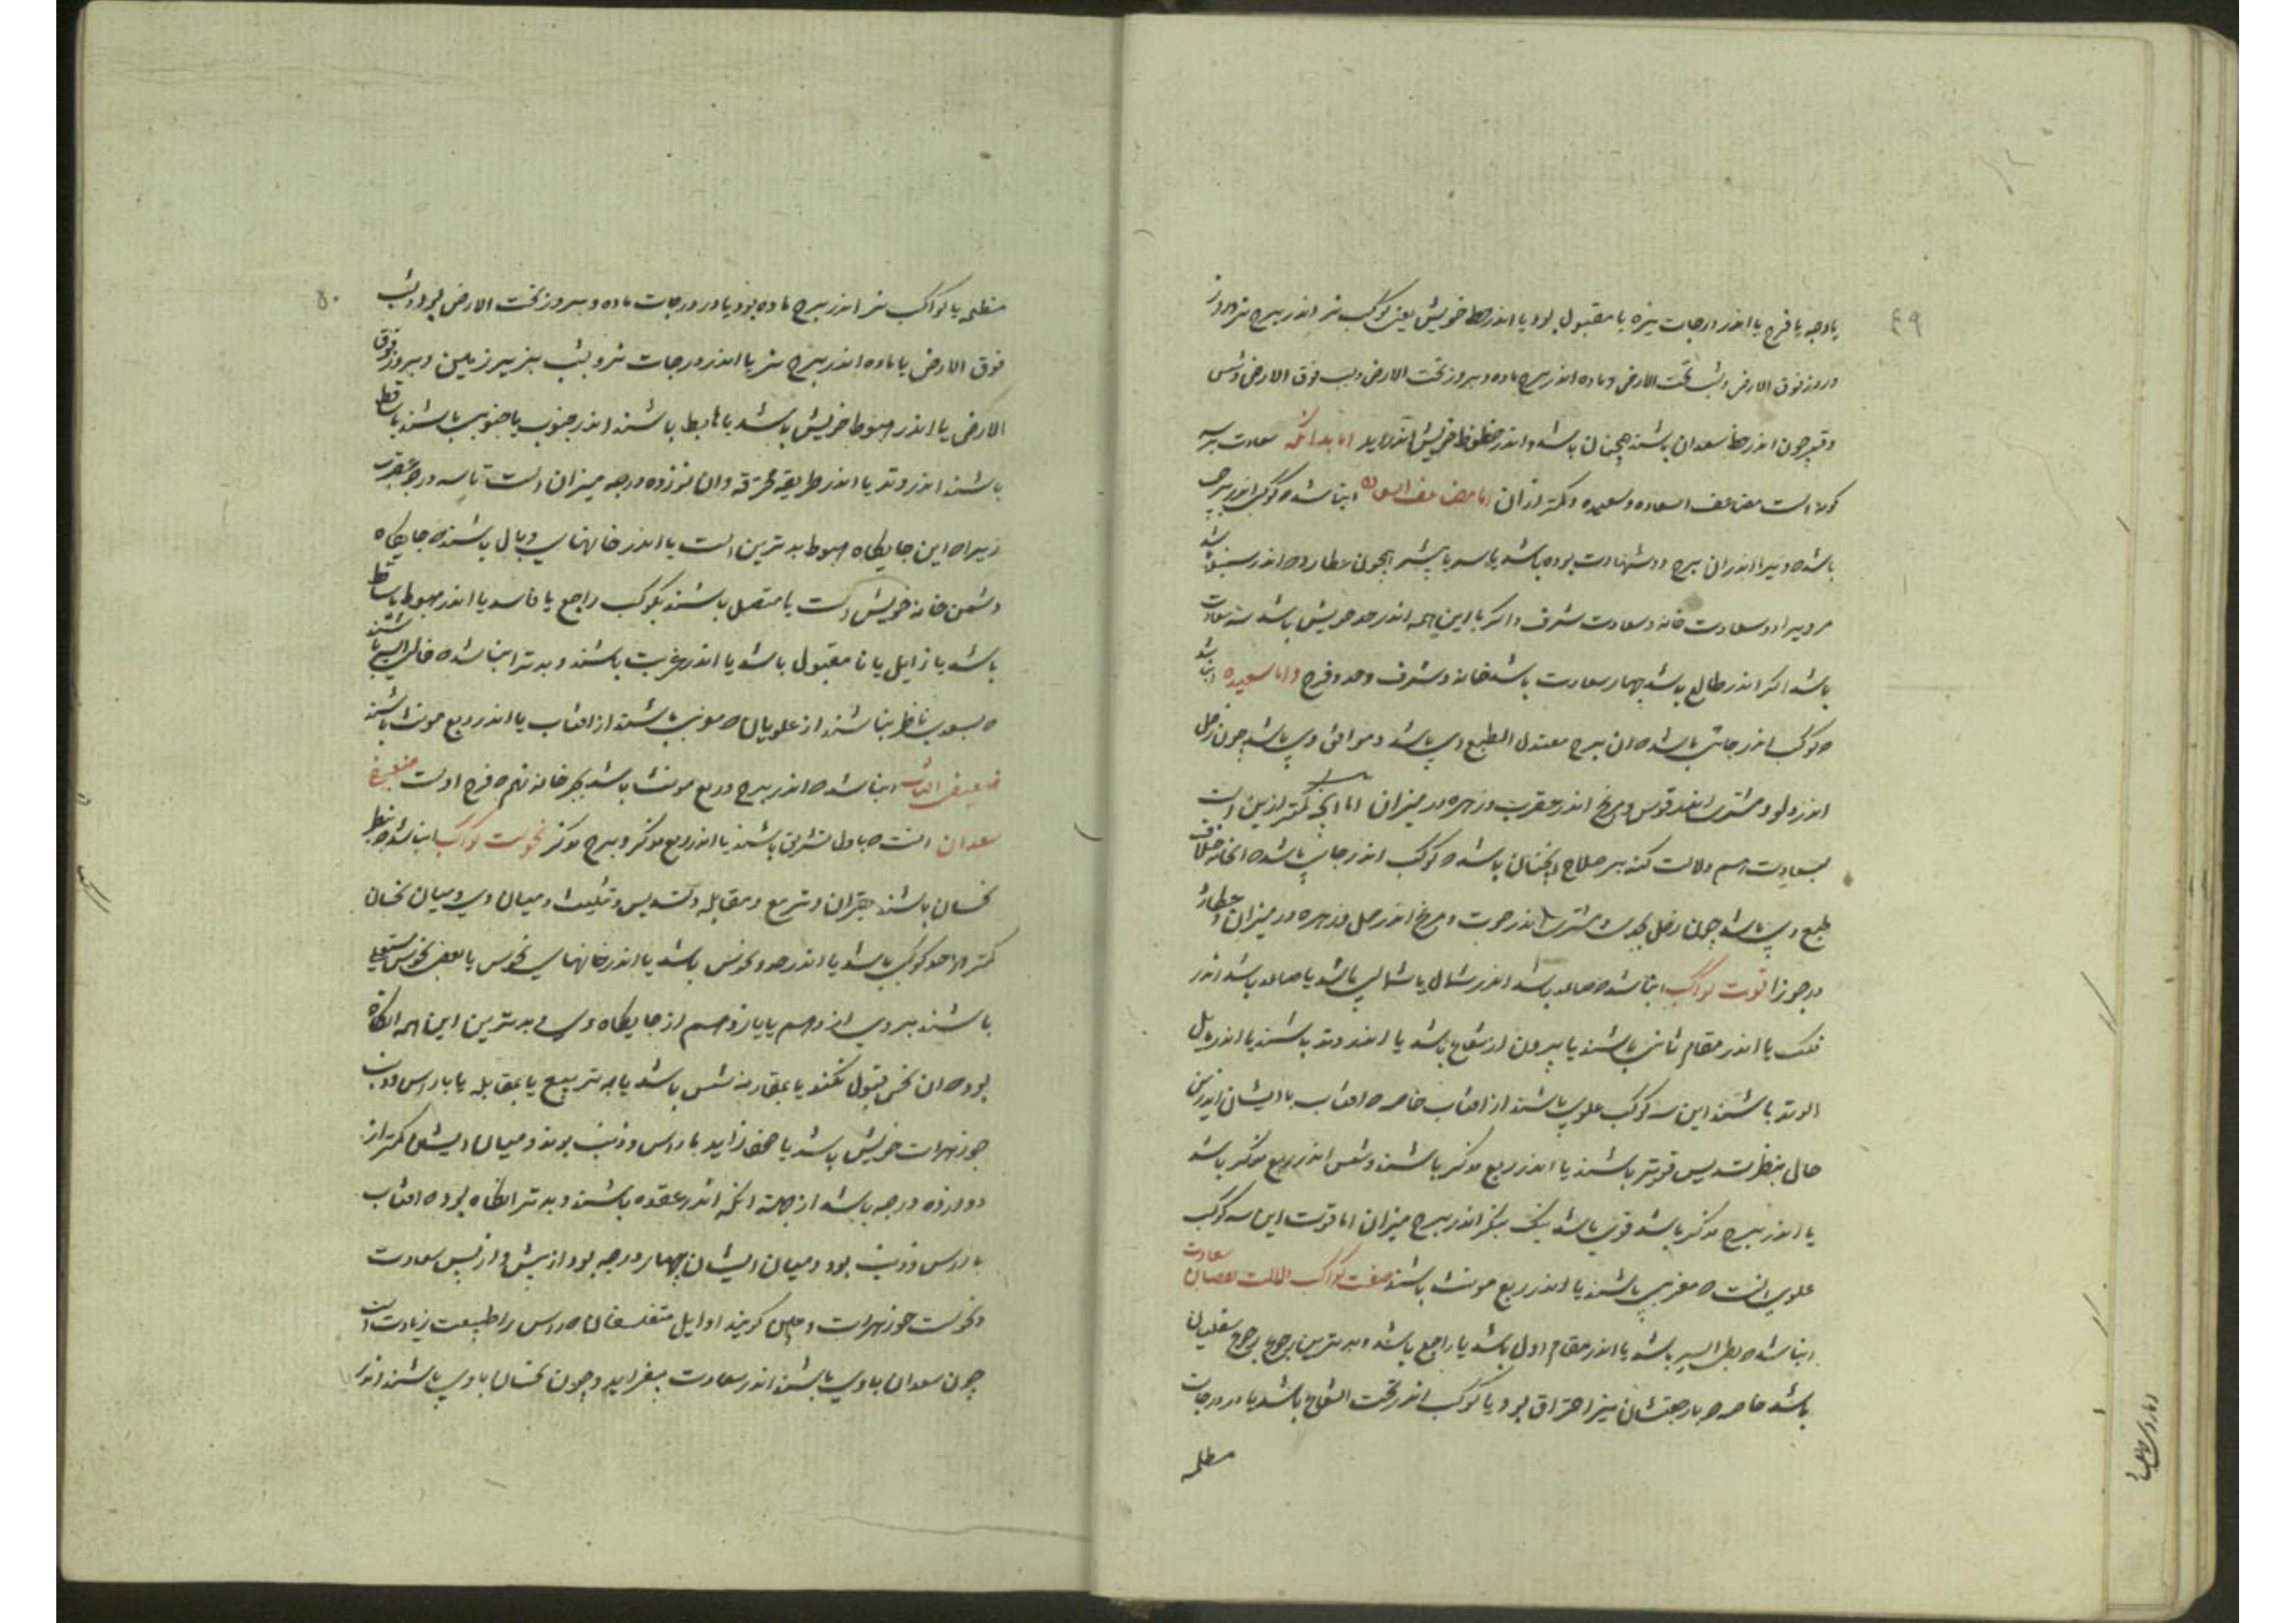 ٤٩
یا وجه یا فرح یا اندر درجات نیره یا مقبول بود یا اندر حظ خویش یعنی کوکب نر اندر برج نر و بروز
و روز فوق الارض و بشب تحت الارض و ماده اندر برج ماده و بروز تحت الارض و بشب فوق الارض و شمس
و قمر چون اندر حظ سعدان باشند همچنان باشد و اندر حظوظ خویش اما بدانکه سعادت بر سه
کونه است مضاعف السعاده و سعیده و کمتر از آن اما مضاعف السعاده انبا شد ه کوکب اندر برجی
باشد ه ویرا اندران برج دو شهادت بوده باشد یا سه یا بیشتر همچون عطارد ه اندر سنبله باشد
مر ویرا دو سعادت خانه و سعادت شرف و اکر با این همه اندر حد خویش باشد سه سعادت
باشد اکر اندر طالع باشد چهار سعادت باشد خانه و شرف و حد و فرح و اما سعیده انبا شد
ه کوکب اندر جائی باشد ه ان برج معتدل الطبع وی باشد و موافق وی باشد چون زحل
اندر دلو و مشتری اندر قوس و مریخ اندر عقرب و زهره در میزان اما انچه کمتر ازین است
بسعادت هم دلالت کند بر صلاح و انچنان باشد ه کوکب اندر جایی باشد ه انخانه خلاف
طبع وی باشد چون زحل بجدی و مشتری اندر حوت و مریخ اندر حمل و زهره در میزان و عطارد
در جوزا قوت کواکب انبا شد ه صاعد باشد اندر شمال یا شمالی باشد یا صاعد باشد اندر
فلک یا اندر مقام ثانی باشند یا بیرون از شعاع باشد یا اندر وتد باشند یا اندر مایل
الوتد باشند این سه کوکب علوی باشند از افتاب خاصه ه افتاب با ایشان اندرین
حال بنظر تسدیس قویتر باشند یا اندر ربع مذکر باشند و شمس اندر ربع مذکر باشد
یا اندر برج مذکر باشد قوی باشد نیک بنکر اندر برج میزان اما قوت این سه کوکب
علوی انست ه مغربی باشند یا اندر ربع مونث باشند صفت کواکب نقصان سعادت
انبا شد ه بطی السیر باشد یا اندر مقام اول باشد یا راجع باشد و بدترین رجوع رجوع سفلیان
باشد خاصه ه با رجعتشان نیز احتراق بود یا کوکب اندر تحت الشعاع باشد یا در درجات
مظلمه
٥٠
مظلمه یا کواکب نر اندر برج ماده بود یا در درجات ماده و بروز تحت الارض بود و بشب
فوق الارض یا ماده اندر برج نر یا اندر درجات نر و بشب بزیر زمین و بروز فوق
الارض یا اندر هبوط خویش باشد یا هابط باشند اندر جنوب یا جنوبی باشند یا ساقط
باشند اندر وتد یا اندر طریقه محترقه و ان نوزده درجه میزان است تا سه درجه عقرب
زیراه این جایکاه هبوط بدترین است یا اندر خانهای وبال باشند ه جایکاه
دشمن خانه خویش است یا متصل باشند بکوکب راجع یا فاسد یا اندر هبوط یا ساقط
باشد یا زایل یا نا مقبول باشد یا اندر غربت باشند و بدتر انبا شد ه خالی السیر باشند
ه بسعدی ناظر نباشند از علویان ه مغربی باشند از افتاب یا اندر ربع مونث باشند
ضعیفی افتاب انبا شد ه اندر برج و ربع مونث باشد بجز خانه نهم ه فرح اوست ضعیفی
سعدان انست ه باول تشریق باشند یا اندر ربع مذکر و برج مذکر نحوست کواکب انبا شد ه بنظر
نحسان باشند بقران و تربیع و مقابله و تسدیس و تثلیث و میان وی و میان نحسان
کمتر از حد کوکبی باشد یا اندر حدود نحوس باشد یا اندر خانهای نحوس یا بعضی نحوس مستعلی
باشند بر وی از دهم یا یازدهم از جایکاه وی و بدترین این همه انکاه
بود ه ان نحس قبول نکند یا بمقارنه شمس باشد یا به تربیع یا بمقابله یا با راس و ذنب
جوزهرات خویش باشد یا با راس و ذنب بوند و میان ایشان کمتر از
دوازده درجه باشد از جهة انکه اندر عقده باشند و بدتر انکاه بود ه افتاب
با راس و ذنب بود و میان ایشان چهار درجه بود از پیش و از پس سعادت
و نحوست جوزهرات و چنین کویند اوایل متفلسفان ه راس را طبیعت زیادت است
چون سعدان با وی باشند اندر سعادت بیفزاید و چون نحسان با وی باشند اندر